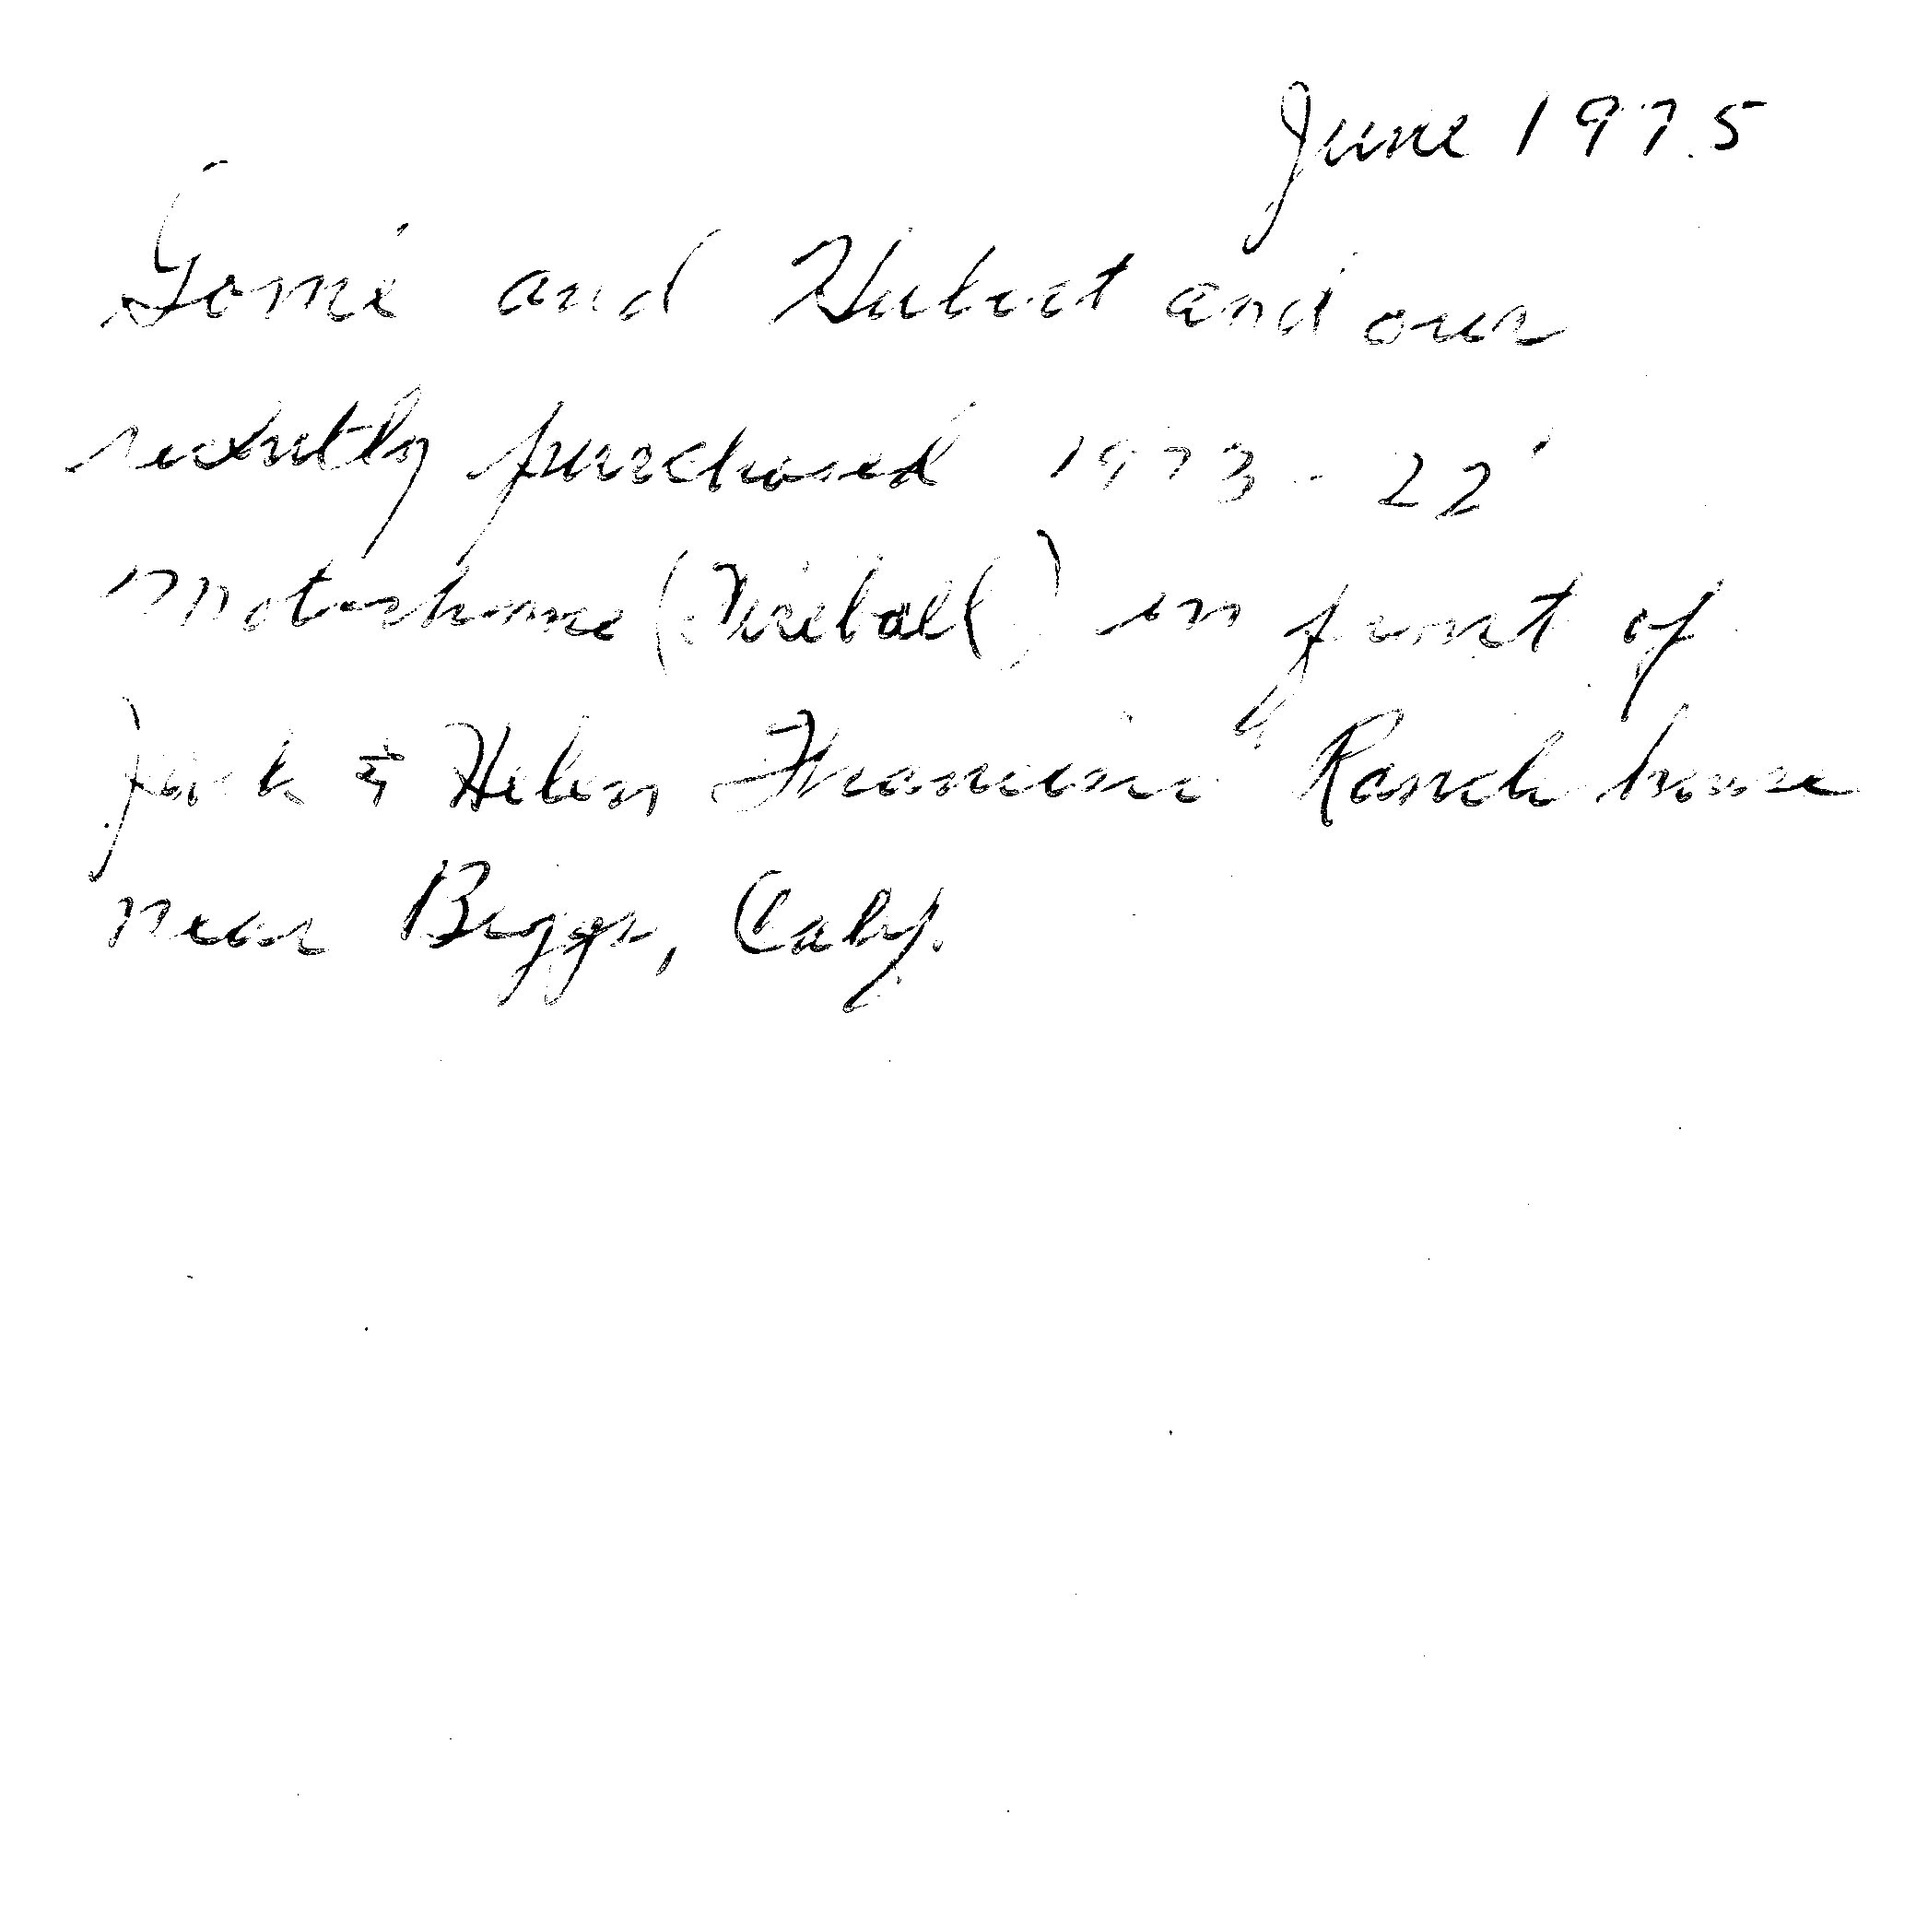 June 1975
and Hubert and our
recently purchased 1973 - 22'
Motorhome (Fireball) in front of
Jack & Helen Ranch house
near Biggs, Calif.